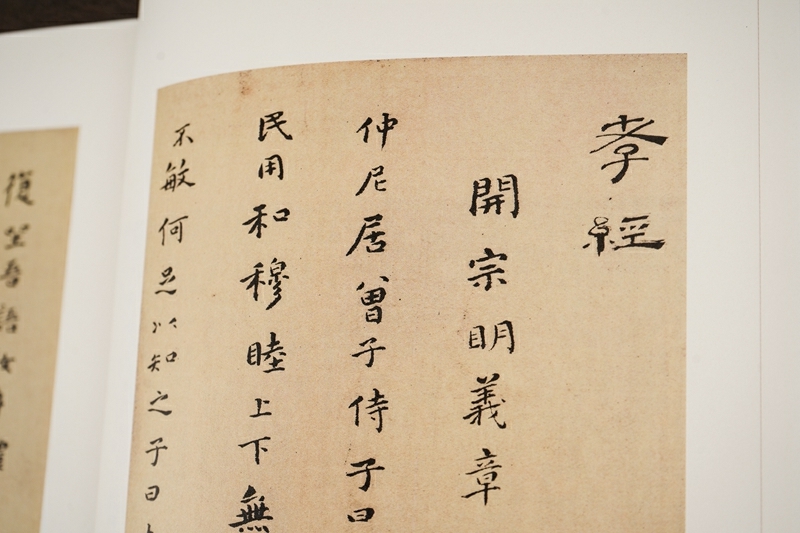 孝經
開宗明義章
仲尼居曾子侍子曰
民用和穆睦上下無
不敏何足以知之子曰
復坐吾語女